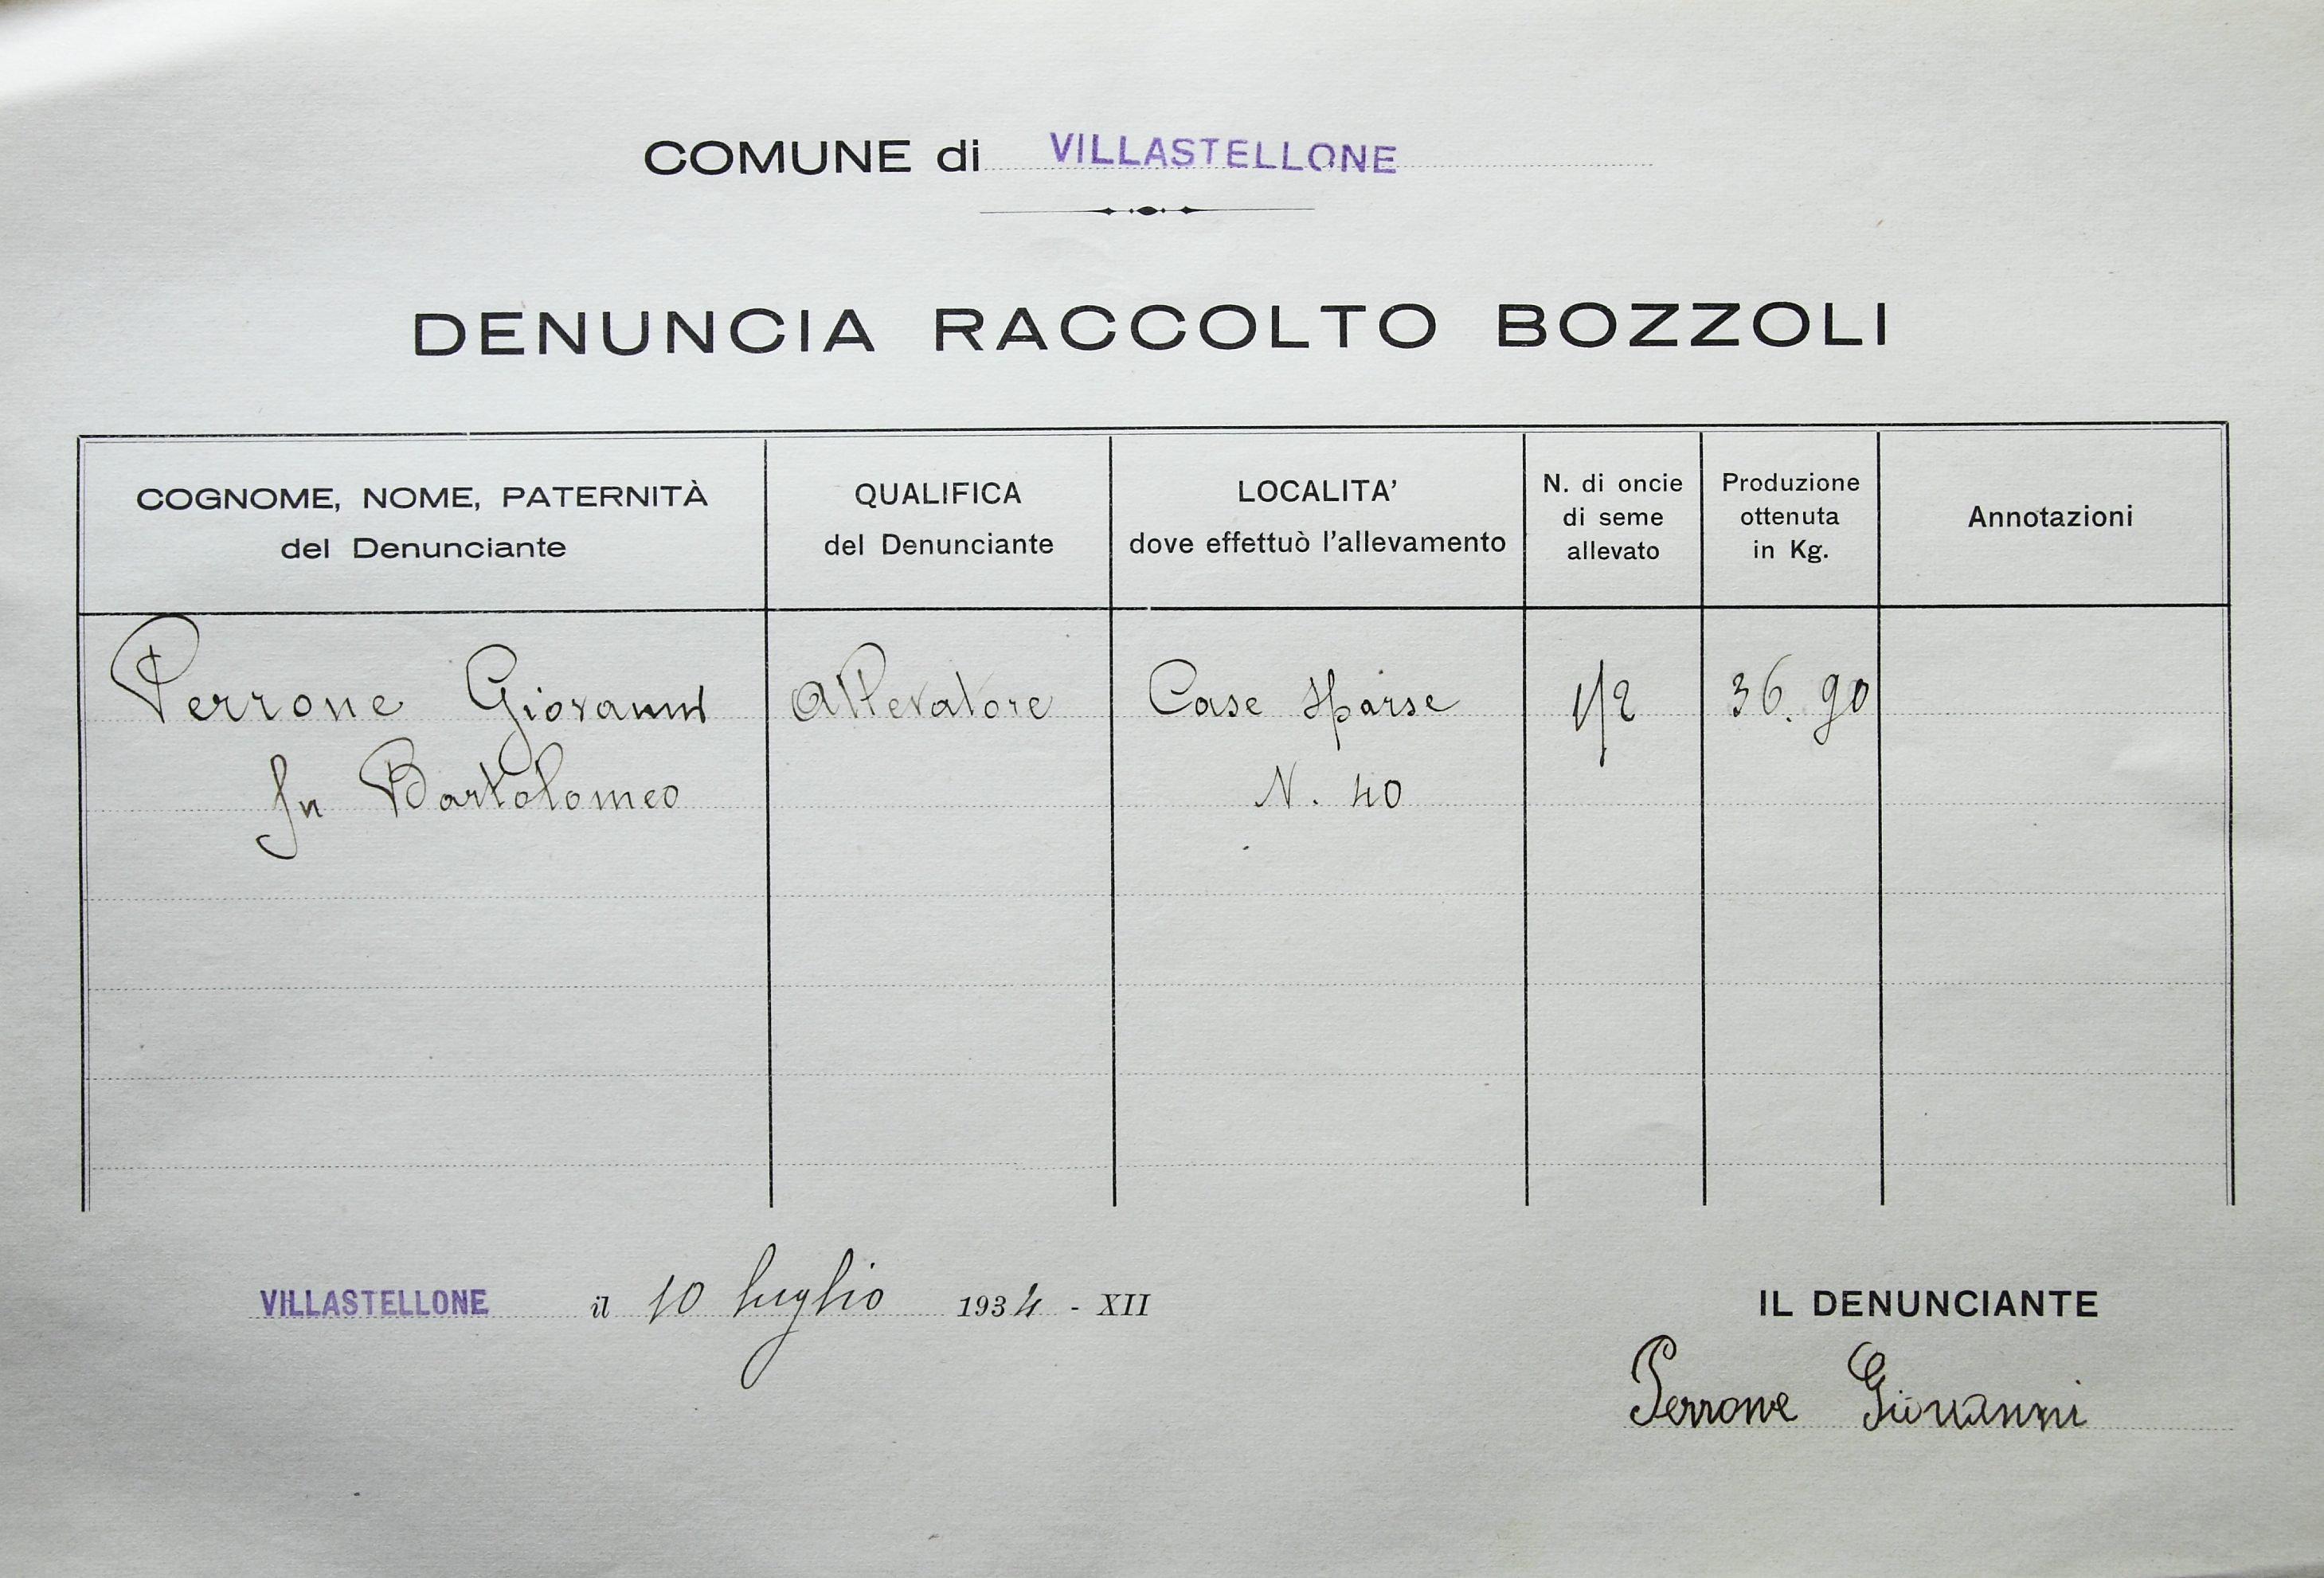 COMUNE di VILLASTELLONE
DENUNCIA RACCOLTO BOZZOLI
COGNOME, NOME, PATERNITÀ
del Denunciante
QUALIFICA
del Denunciante
LOCALITA'
dove effettuò l'allevamento
N. di oncie
di seme
allevato
Produzione
ottenuta
in Kg.
Annotazioni
Perrone Giovanni Allevatore Case sparse 1/2 36.90
fu Bartolomeo N. 40
VILLASTELLONE il 10 luglio 1934 - XII
IL DENUNCIANTE
Perrone Giovanni